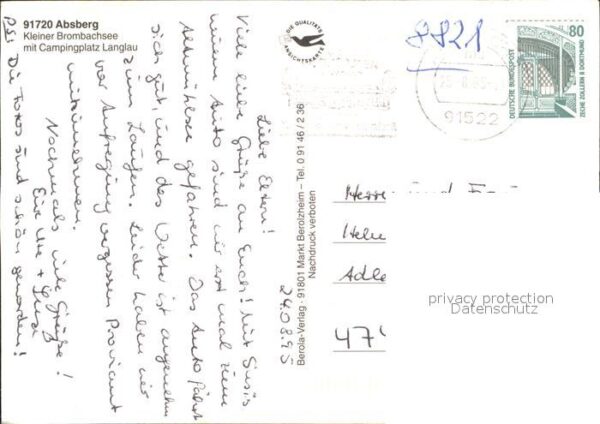 91720 Absberg
Kleiner Brombachsee
mit Campingplatz Langlau
DIE QUALITÄTS
ANSICHTSKARTE
8821
91522
80
DEUTSCHE BUNDESPOST
ZECHE ZOLLERN II DORTMUND
24.08.95
Liebe Eltern!
Viele liebe Grüße an Euch! Mit Susis
neuem Auto sind wir erst mal zum
gefahren. Das Auto fährt
sich gut und das Wetter ist angenehm
zum Laufen. Leider haben wir
vor Aufregung vergessen Proviant
mitzunehmen.
Nochmals viele Grüße!
Eure Ute + Susi
P.S: Die Fotos sind schön geworden!
Berola-Verlag · 91801 Markt Berolzheim – Tel. 0 91 46 / 2 36
Nachdruck verboten
Herrn und
Adle
47
privacy protection
Datenschutz